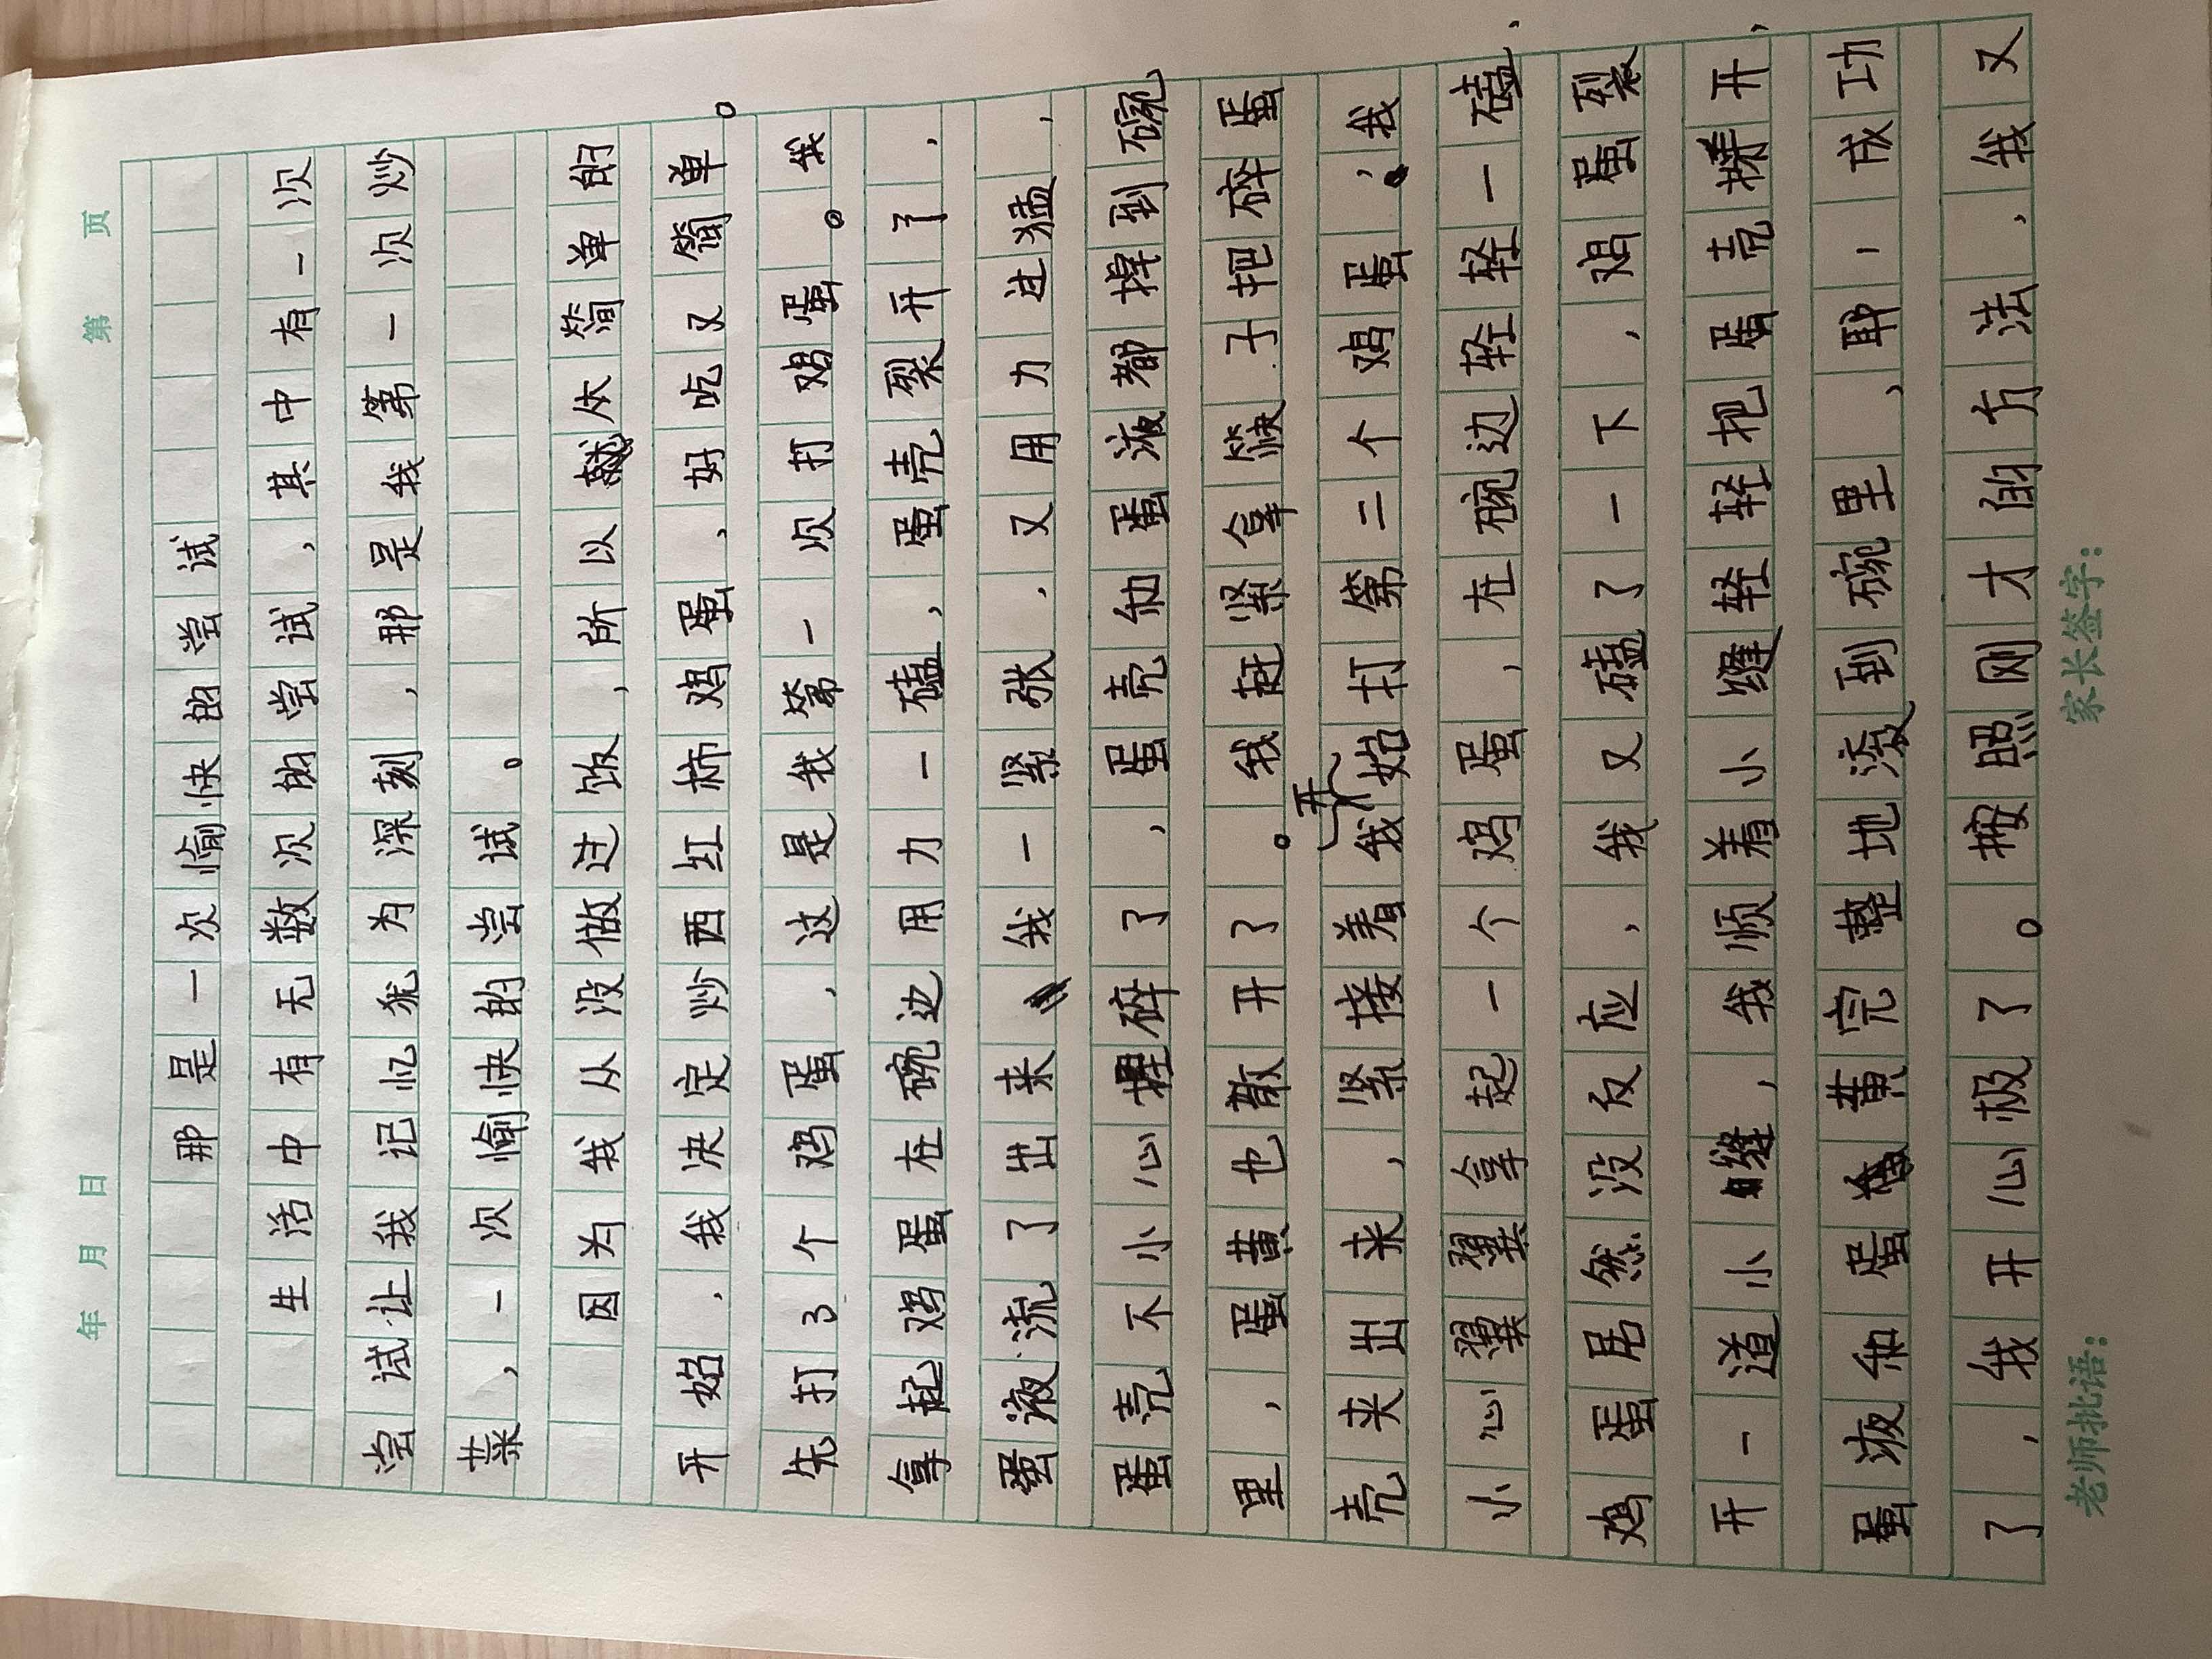 年 月 日 第 页
那是一次愉快的尝试
生活中有无数次的尝试，其中有一次
尝试让我记忆犹为深刻，那是我第一次炒
菜，一次愉快的尝试。
因为我从没做过饭，所以就从简单的
开始，我决定炒西红柿鸡蛋，好吃又简单。
先打3个鸡蛋，这是我第一次打鸡蛋。我
拿起鸡蛋在碗边用力一磕，蛋壳裂开了，
蛋液流了出来，我一紧张，又用力过猛，
蛋壳不小心捏碎了，蛋壳和蛋液都掉到碗
里，蛋黄也散开了。我赶紧拿筷子把碎蛋
壳夹出来，紧接着我开始打第二个鸡蛋，我
小心翼翼拿起一个鸡蛋，在碗边轻轻一磕，
鸡蛋居然没反应，我又磕了一下，鸡蛋裂
开一道小缝，我顺着小缝轻轻把蛋壳掰开，
蛋液和蛋黄完整地滚到碗里，耶，成功
了，我开心极了。按照刚才的方法，我又
老师批语： 家长签字：